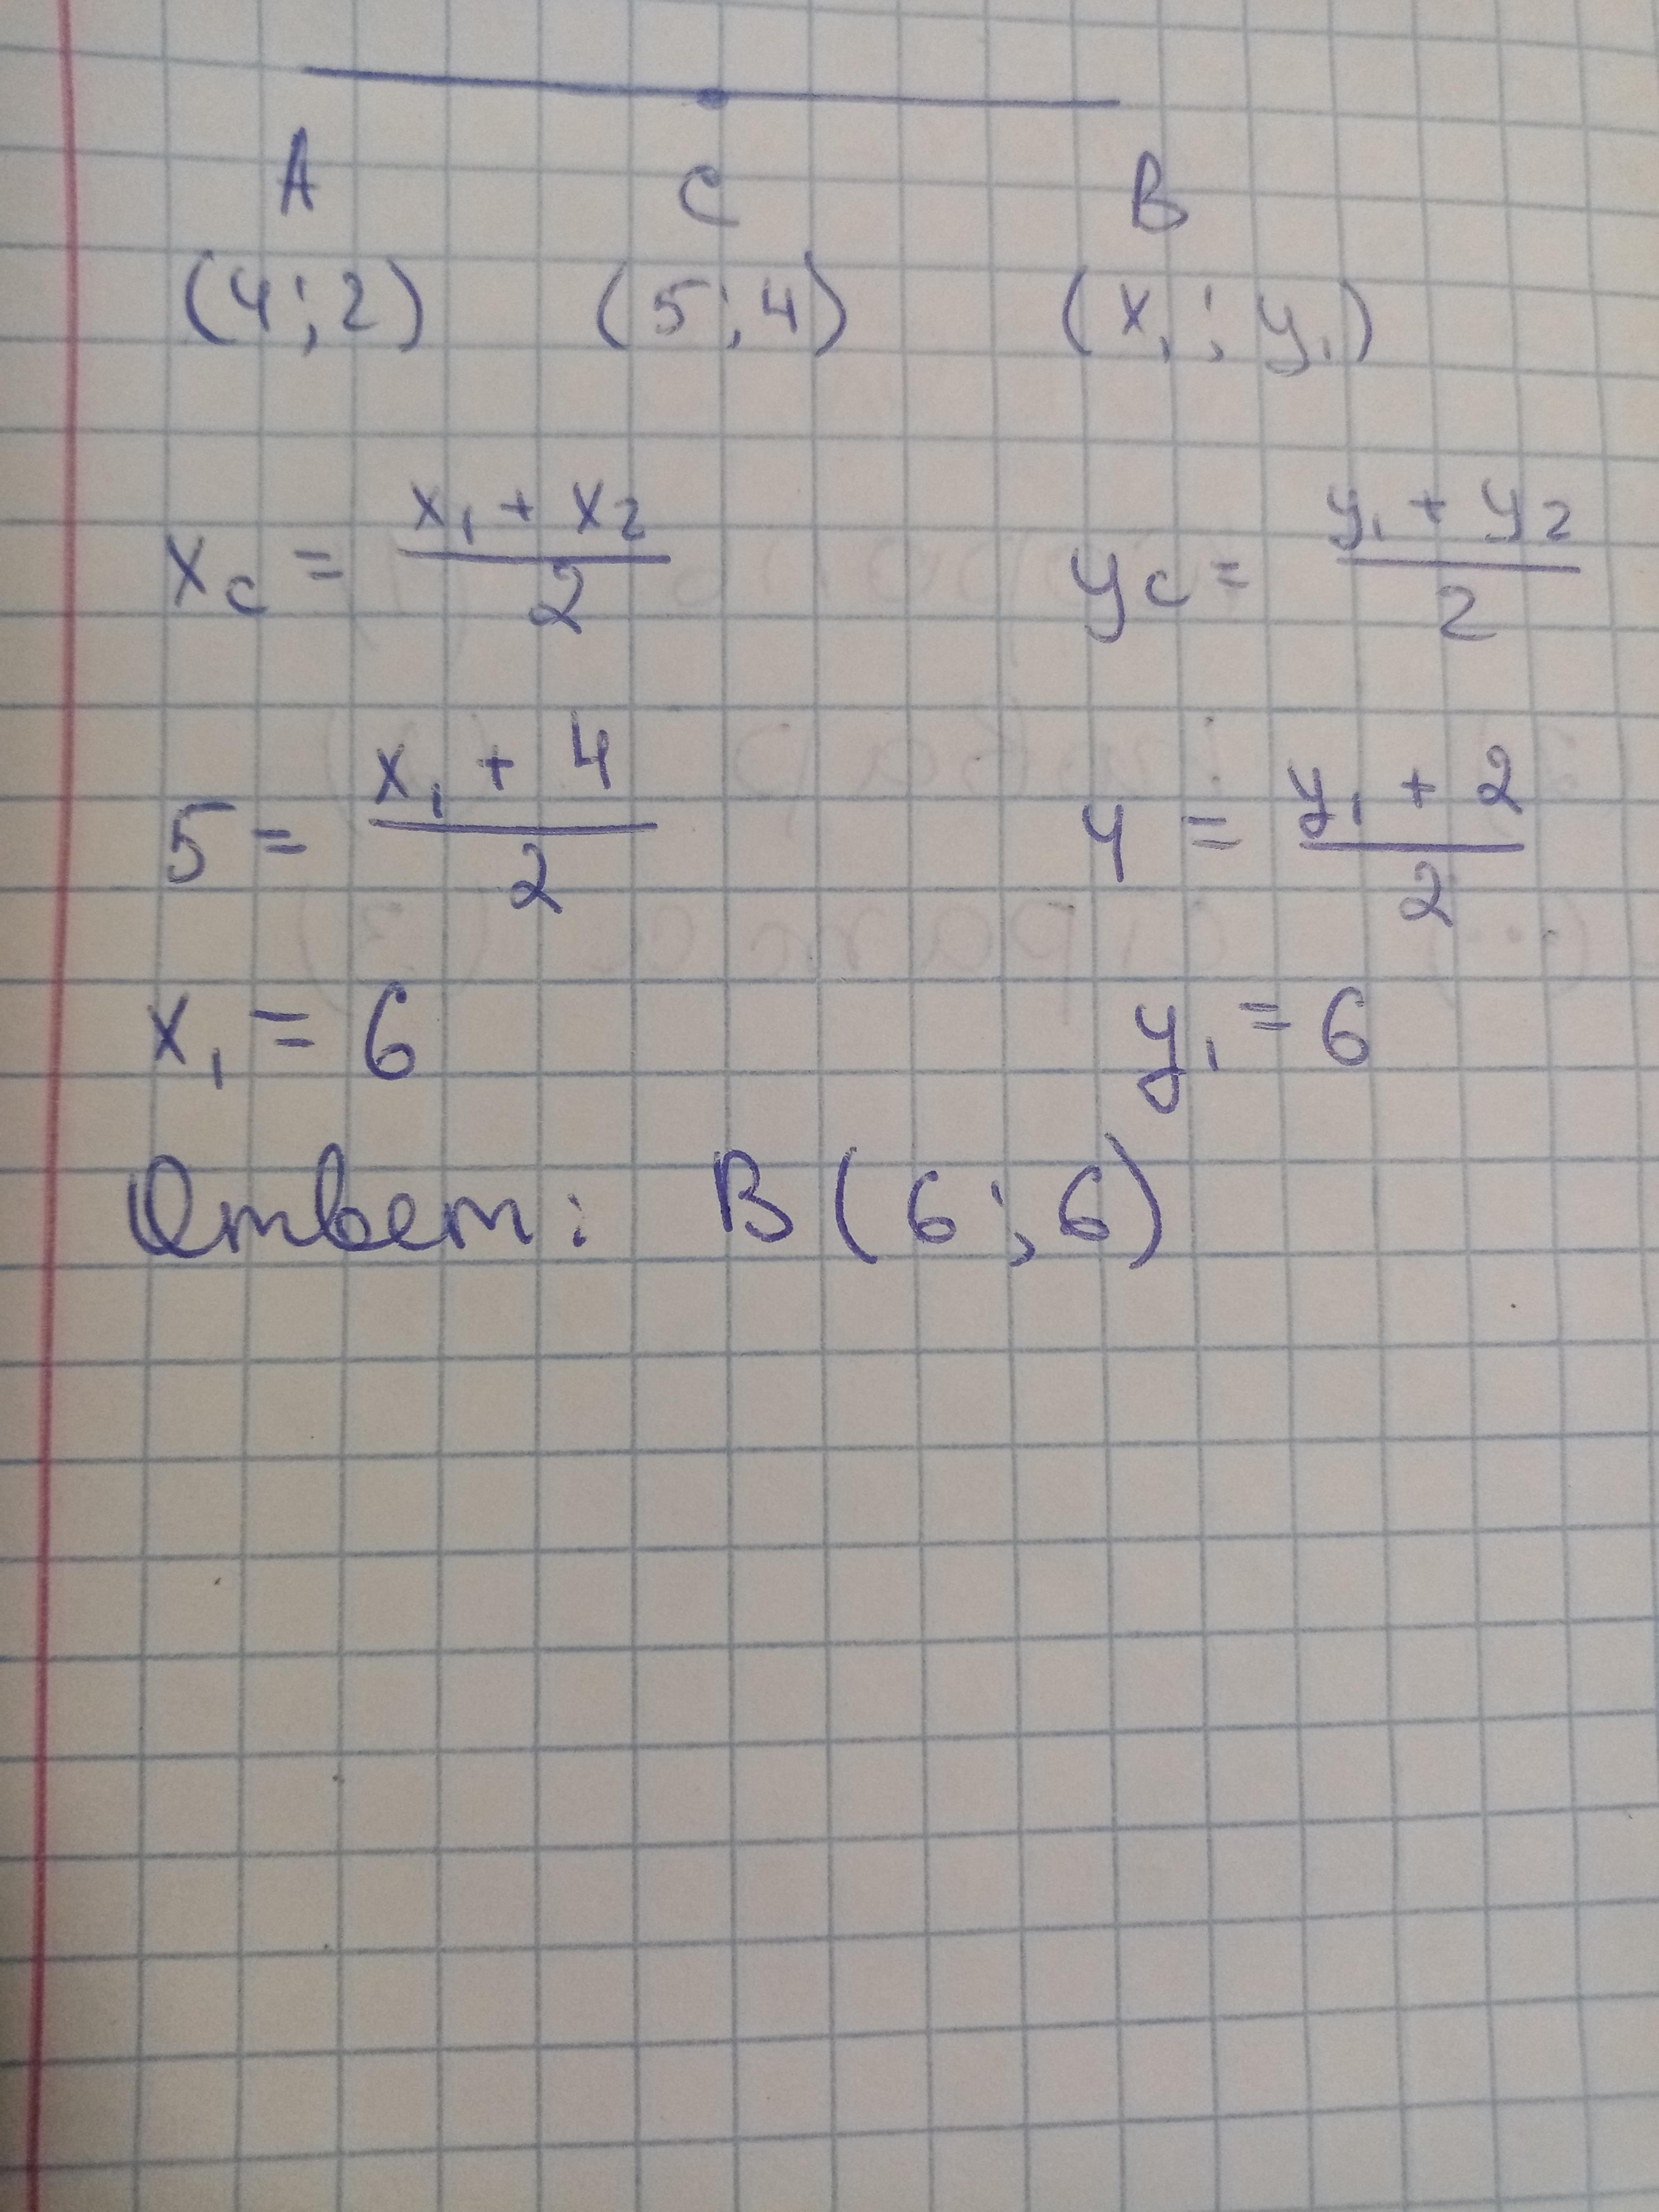 A C B
(4;2) (5;4) (x₁;y₁)
x_c = (x₁ + x₂)/2 y_c = (y₁ + y₂)/2
5 = (x₁ + 4)/2 4 = (y₁ + 2)/2
x₁ = 6 y₁ = 6
Ответ: B(6;6)